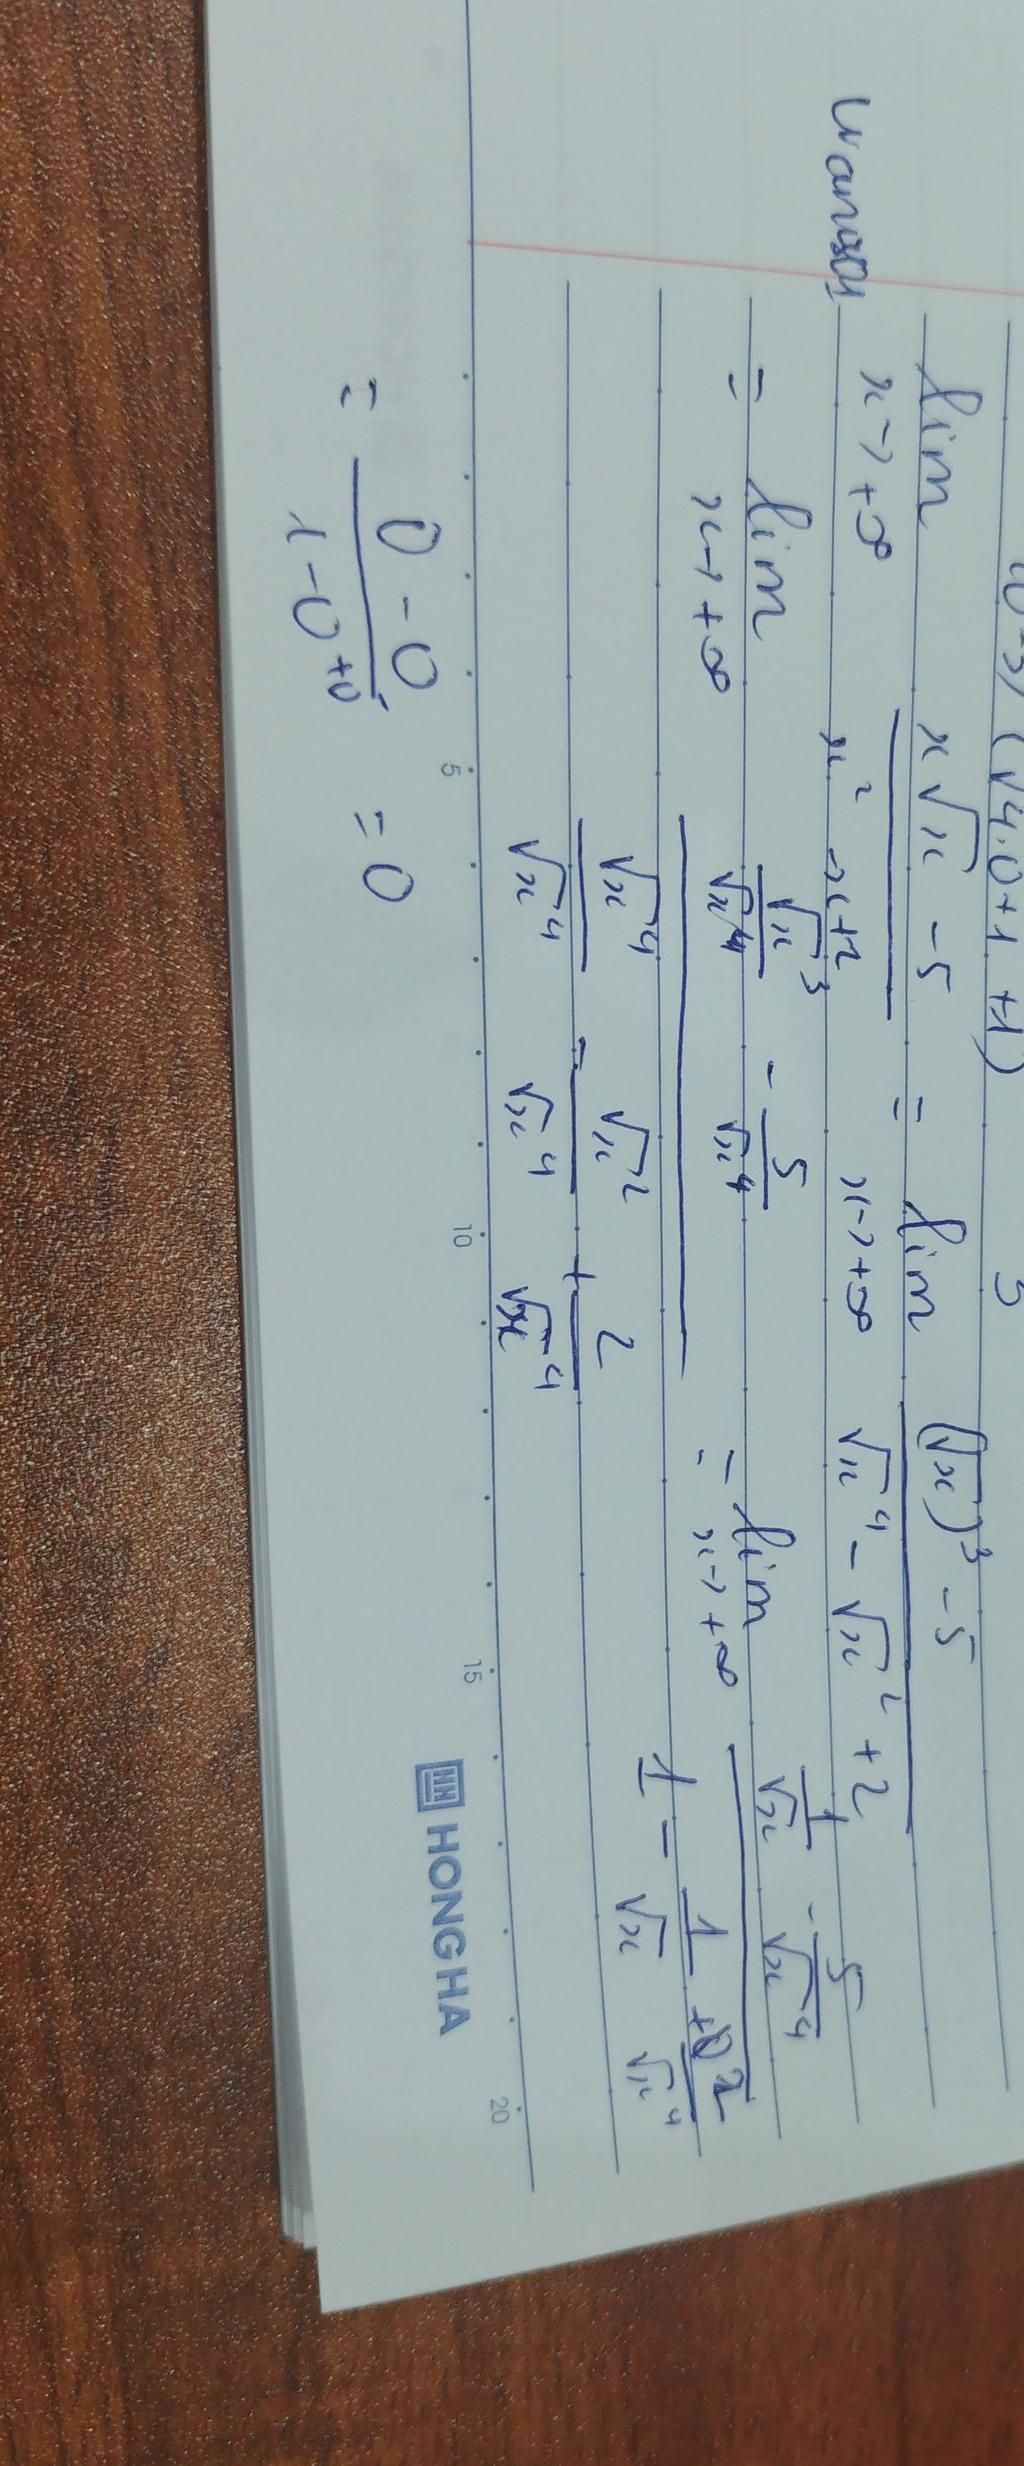 (√4.0+1 +1) 3
lim x→+∞ (x√x - 5)/(x² - x+2) = lim x→+∞ ((√x)³ - 5)/(√x⁴ - √x² + 2)
= lim x→+∞ (√x³/√x⁴ - 5/√x⁴)/(√x⁴/√x⁴ - √x²/√x⁴ + 2/√x⁴) = lim x→+∞ (1/√x - 5/√x⁴)/(1 - 1/√x + 2/√x⁴)
= (0 - 0)/(1 - 0 +0) = 0
5 10 15 20
HONG HA